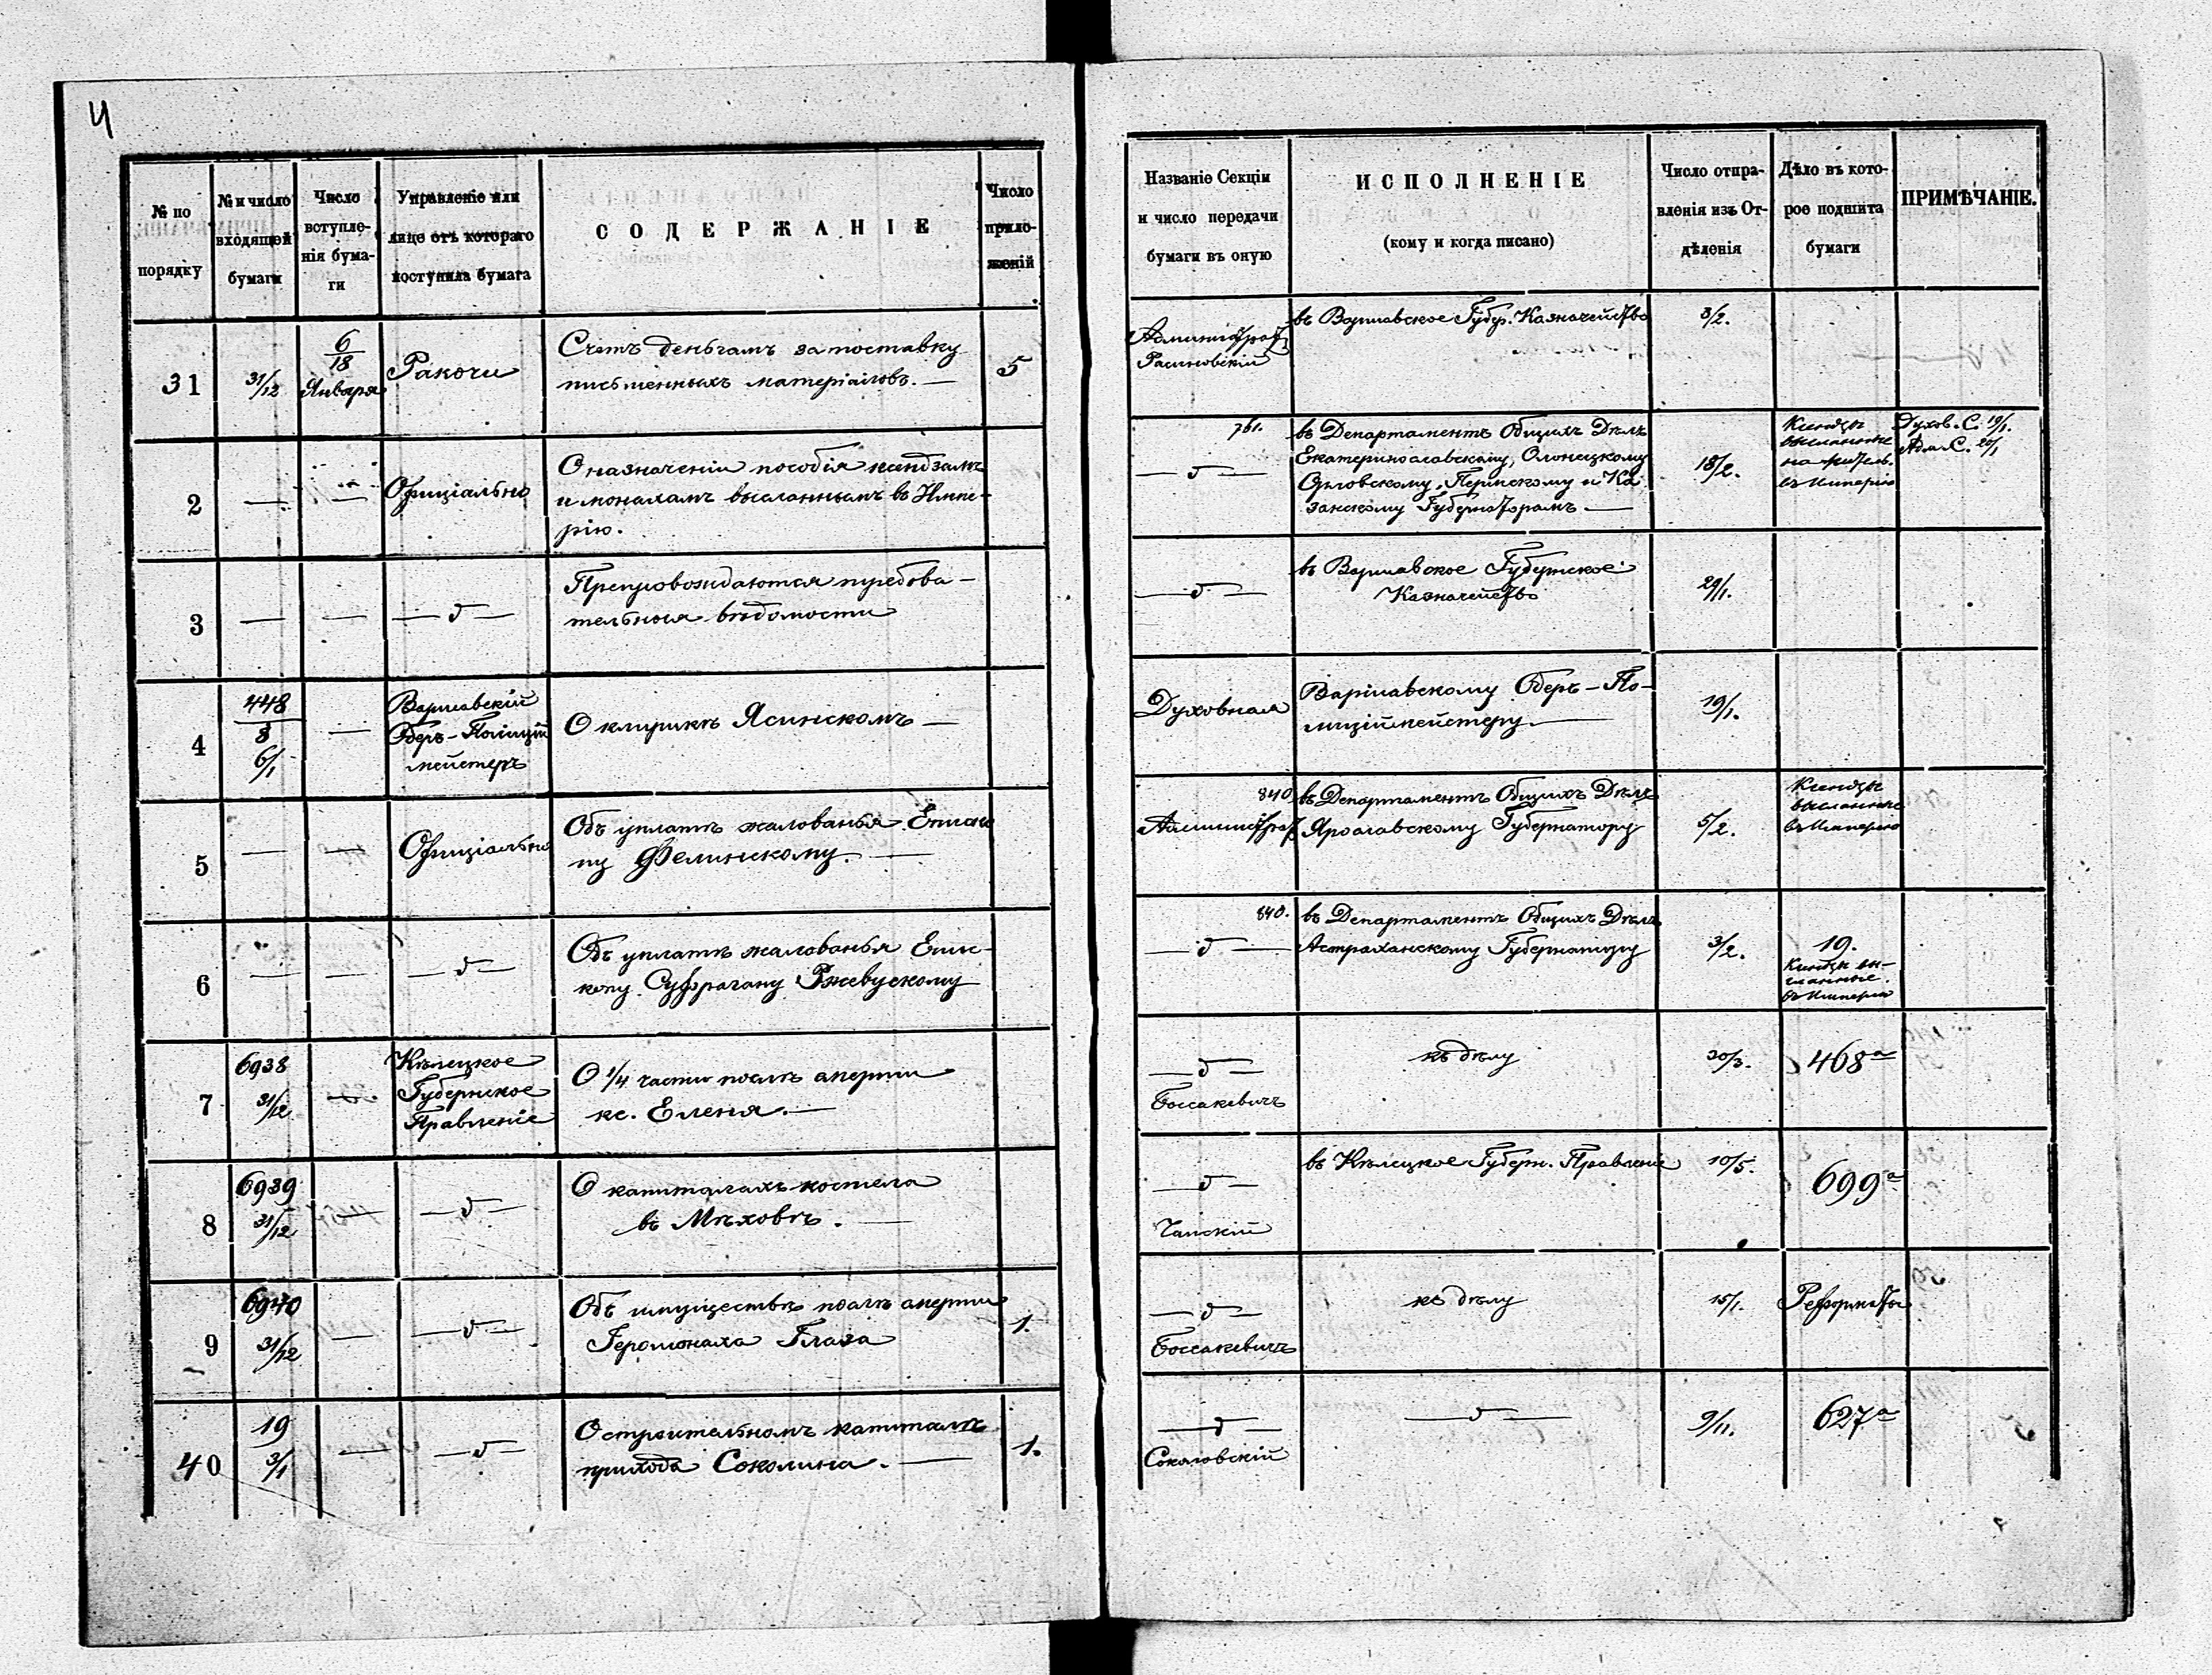 4
№ по
порядку
№ и число
входящей
бумаги
Число
вступле-
нія бума-
ги
Управленіе или
лице отъ котораго
поступила бумага
СОДЕРЖАНІЕ
Число
прило-
женій
Названіе Секціи
и число передачи
бумаги въ оную
ИСПОЛНЕНІЕ
(кому и когда писано)
Число отпра-
вленія изъ От-
дѣленія
Дѣло въ кото-
рое подшита
бумаги
ПРИМѢЧАНІЕ.
31
31/12
6/18
Января
Ракочи
Счетъ деньгамъ за поставку
письменныхъ матеріаловъ. —
5
Администрат.
въ Варшавское Губер. Казначейство
3/2.
2
—
—
Офиціально
О назначеніи пособія ксендзамъ
и монахамъ высланнымъ въ Импе-
рію.
761.
— d —
въ Департаментъ Общихъ Дѣлъ
Екатеринославскому, Олонецкому
Орловскому, Пермскому и Ка
занскому Губернаторамъ. —
18/2.
Ксендзы
высланные
на житель.
въ Имперію
Духов. С. 19/1.
Адм. С. 20/1
3
—
—
— d —
Препровождаются требова-
тельныя вѣдомости
— d —
въ Варшавское Губернское
Казначейство
29/1.
4
448
8
6/1
—
Варшавскій
Оберъ-Полицій
мейстеръ
О клирикѣ Ясинскомъ —
Духовная
Варшавскому Оберъ-По-
лиціймейстеру. —
19/1.
5
—
—
Офиціально
Объ уплатѣ жалованья Еписко
пу Фелинскому. —
840
Администрат.
въ Департаментъ Общихъ Дѣлъ
Ярославскому Губернатору
5/2.
Ксендзы
высланные
въ Имперію
6
—
—
— d —
Объ уплатѣ жалованья Епис-
копу Суфрагану Ржевускому
840.
— d —
въ Департаментъ Общихъ Дѣлъ
Астраханскому Губернатору
3/2.
19.
Ксендзы вы-
сланные
въ Имперію
7
6938
31/12
—
Кѣлецкое
Губернское
Правленіе
О 1/4 части послѣ смерти
кс. Еленя. —
— d —
Боссакевичъ
къ дѣлу
30/3.
468а
8
6939
31/12
—
— d —
О капиталахъ костела
въ Мѣховѣ. —
— d —
въ Кѣлецкое Губерн. Правленіе
10/5.
699а
9
6940
31/12
—
— d —
Объ имуществѣ послѣ смерти
Іеромонаха Глаза
1.
— d —
Боссакевичъ
къ дѣлу
15/1.
Реформаты
40
19
3/1
—
— d —
О строительномъ капиталѣ
прихода Соколина. —
1.
— d —
Соколовскій
— d —
9/11.
627а